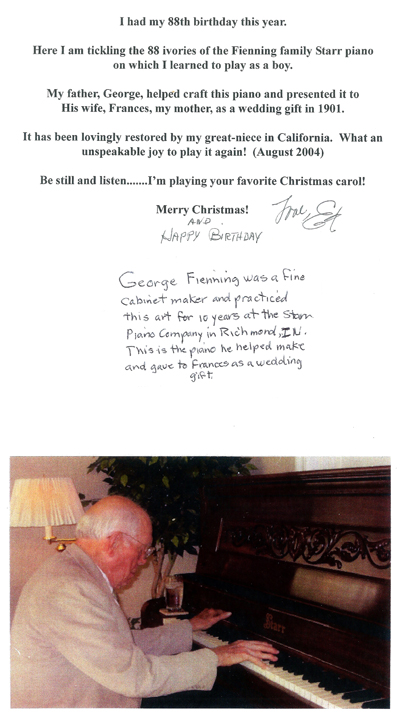 I had my 88th birthday this year.
Here I am tickling the 88 ivories of the Fienning family Starr piano
on which I learned to play as a boy.
My father, George, helped craft this piano and presented it to
His wife, Frances, my mother, as a wedding gift in 1901.
It has been lovingly restored by my great-niece in California. What an
unspeakable joy to play it again! (August 2004)
Be still and listen.......I'm playing your favorite Christmas carol!
Merry Christmas!
AND
HAPPY BIRTHDAY
George Fienning was a fine
cabinet maker and practiced
this art for 10 years at the Starr
Piano Company in Richmond, IN.
This is the piano he helped make
and gave to Frances as a wedding
gift.
Starr